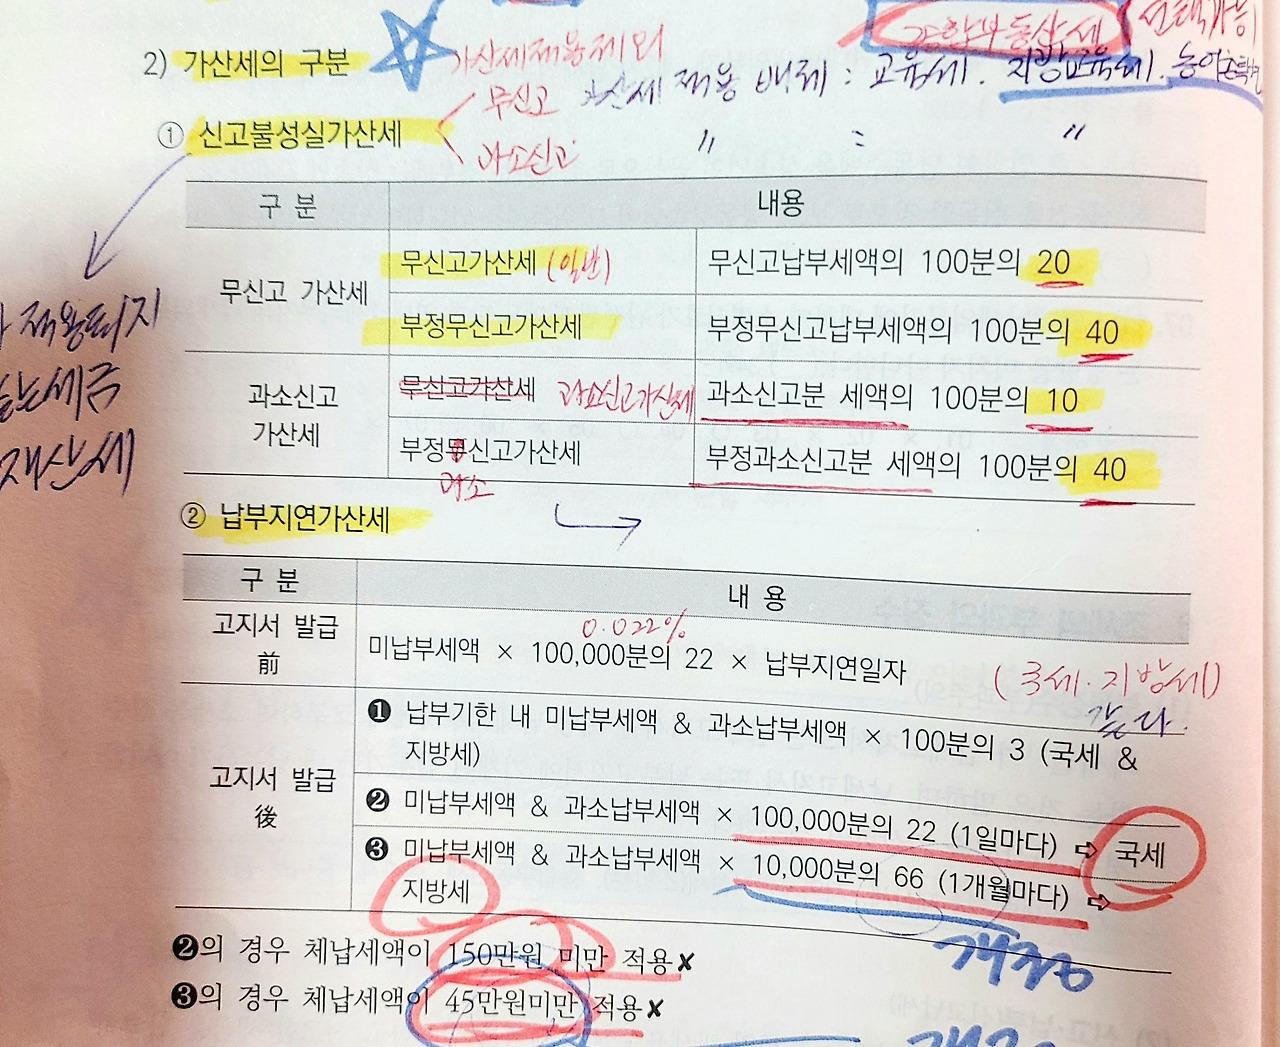 종합부동산세 선택가능
2) 가산세의 구분 가산세적용제외
무신고 가산세 적용 배제 : 교육세. 지방교육세. 농어촌특별
① 신고불성실가산세
과소신고 〃 : 〃
구 분 내용
무신고 가산세 무신고가산세 (일반) 무신고납부세액의 100분의 20
부정무신고가산세 부정무신고납부세액의 100분의 40
적용되지
과소신고 가산세 무신고가산세 과소신고가산세 과소신고분 세액의 100분의 10
세금
부정무신고가산세 부정과소신고분 세액의 100분의 40
재산세 과소
② 납부지연가산세
구 분 내 용
0.022%
고지서 발급 前 미납부세액 × 100,000분의 22 × 납부지연일자
(국세·지방세)
같다.
고지서 발급 後 ❶ 납부기한 내 미납부세액 & 과소납부세액 × 100분의 3 (국세 &
지방세)
❷ 미납부세액 & 과소납부세액 × 100,000분의 22 (1일마다) ⇨ 국세
❸ 미납부세액 & 과소납부세액 × 10,000분의 66 (1개월마다) ⇨
지방세
개정
❷의 경우 체납세액이 150만원 미만 적용✘
❸의 경우 체납세액이 45만원미만 적용✘
개정